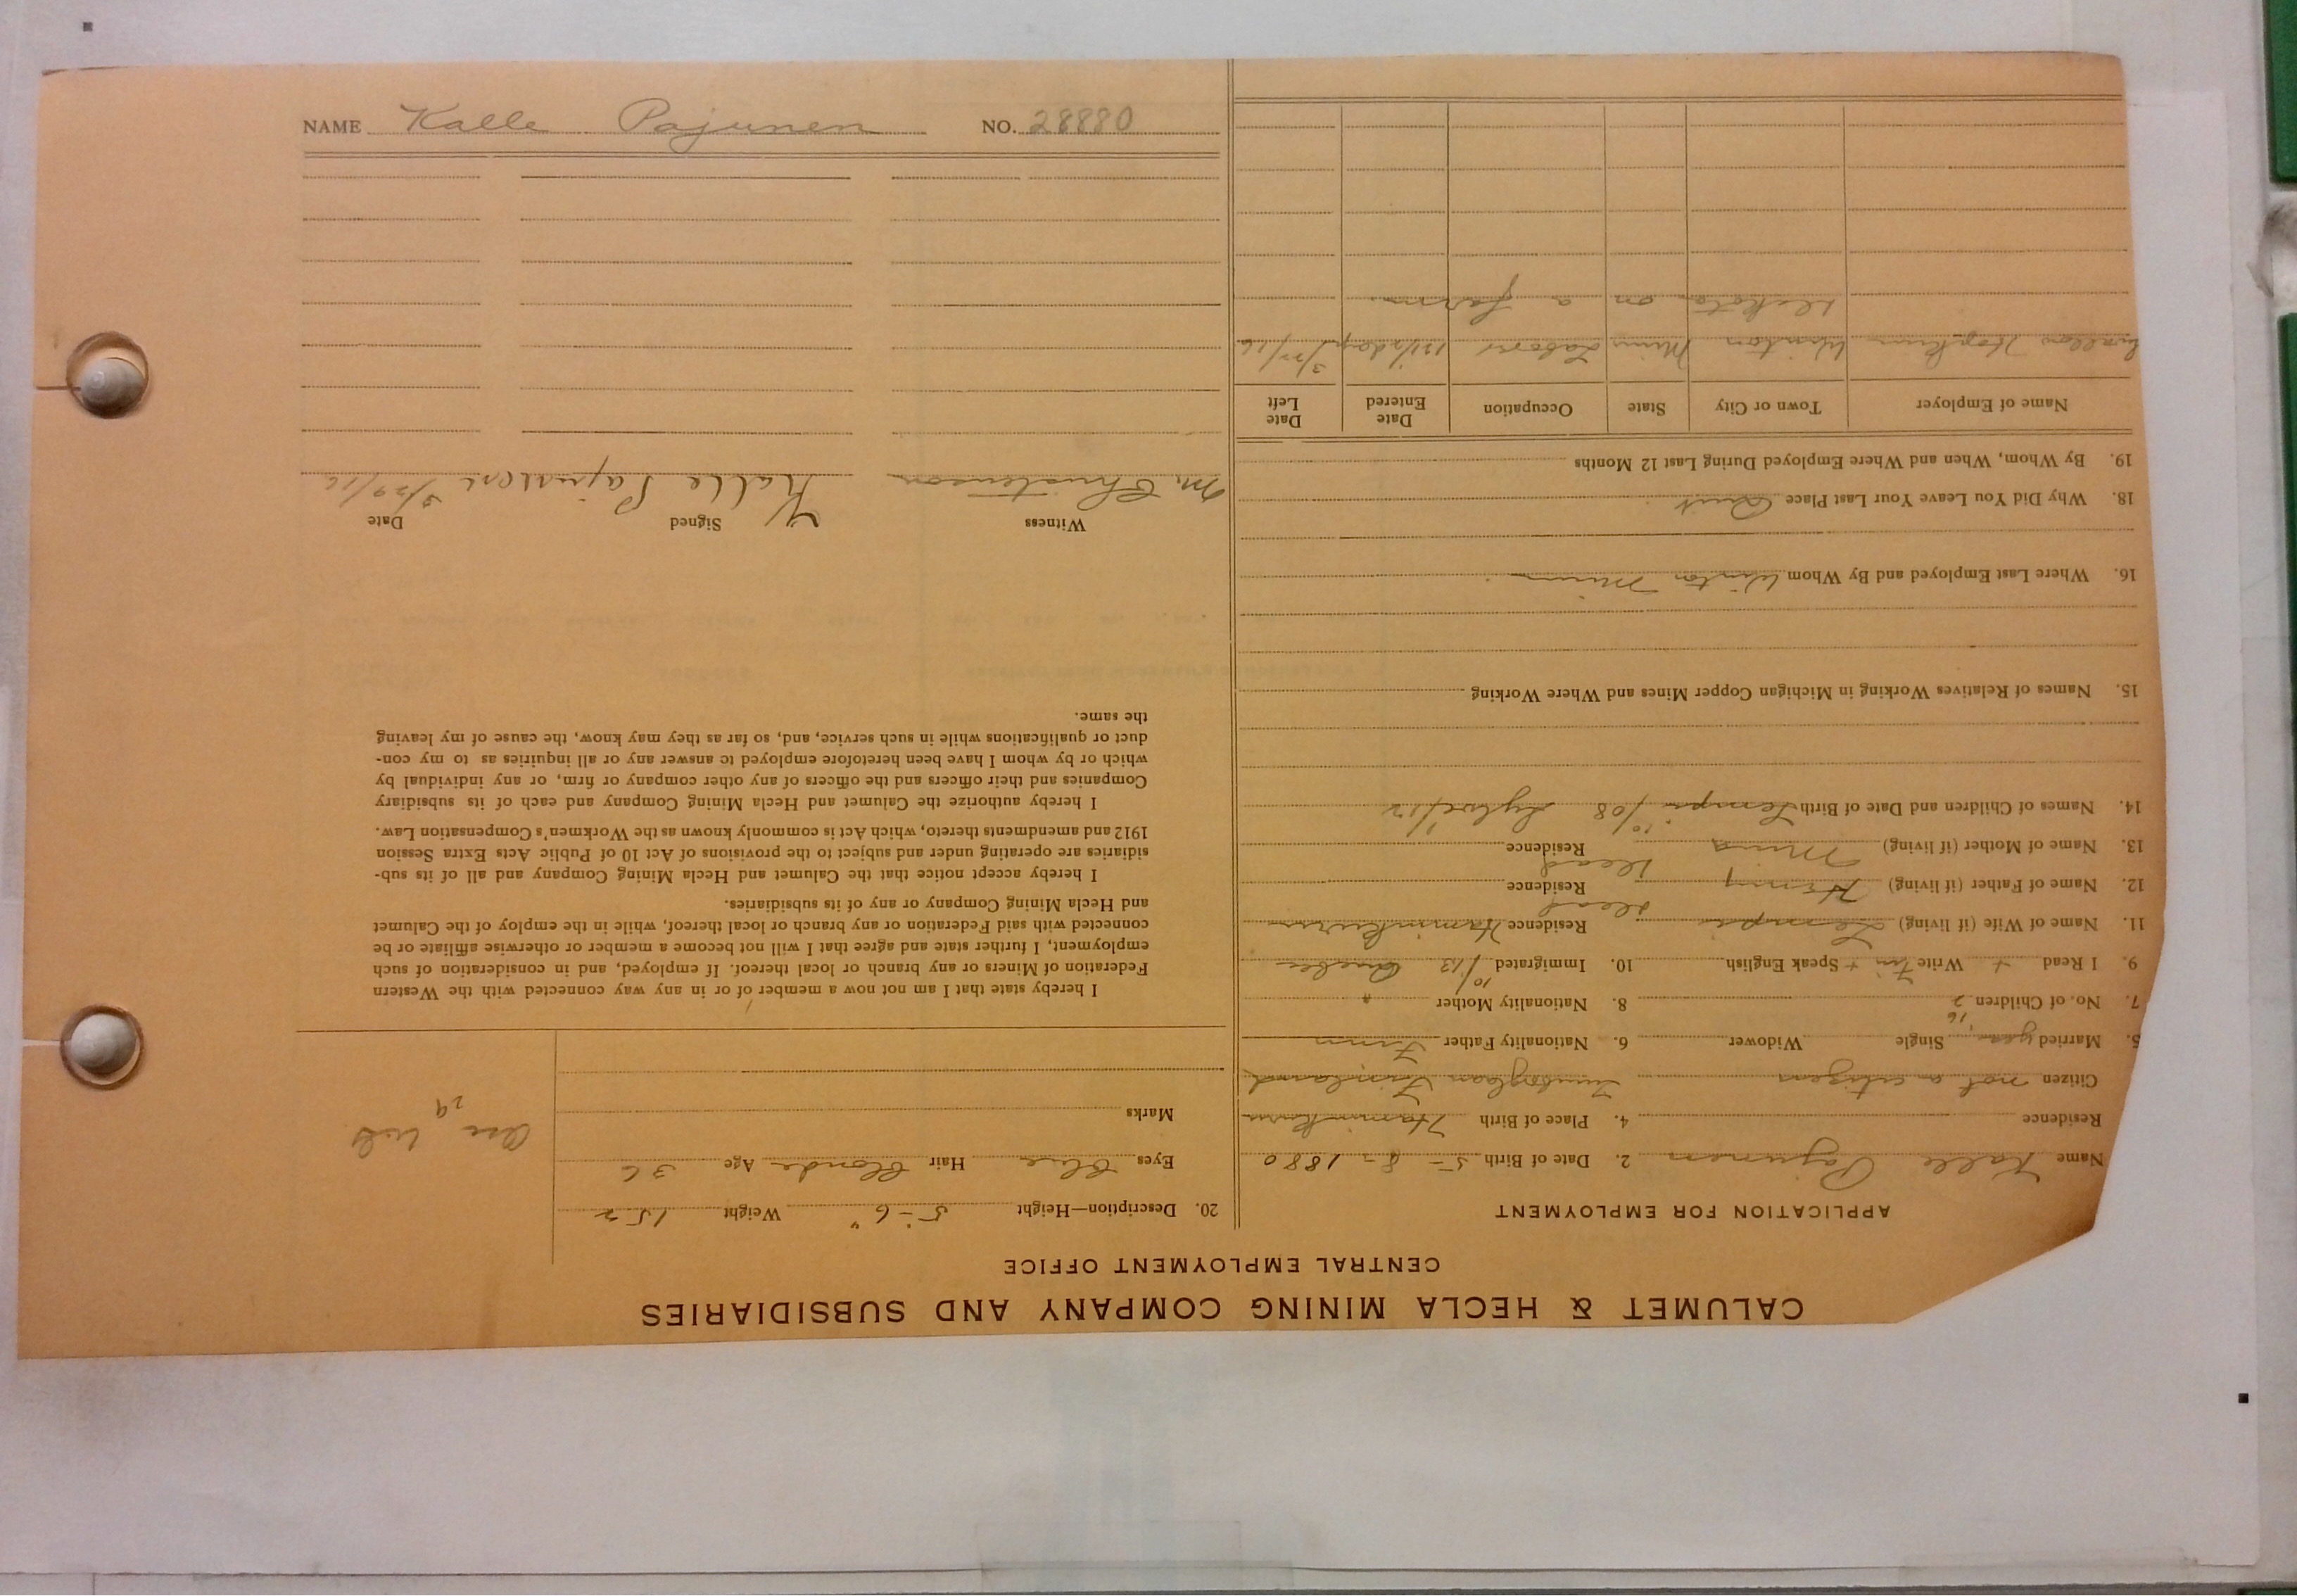 CALUMET & HECLA MINING COMPANY AND SUBSIDIARIES
CENTRAL EMPLOYMENT OFFICE
APPLICATION FOR EMPLOYMENT
Name Kalle Pajunen 2. Date of Birth 5-8-1880
Residence 4. Place of Birth
Citizen not a citizen Finland
5. Married Single Widower 6. Nationality Father Finn
16
7. No. of Children 2 8. Nationality Mother "
9. I Read + Write Fin + Speak English 10. Immigrated 10/13
11. Name of Wife (if living) Lempi Residence
12. Name of Father (if living) Henry dead Residence
13. Name of Mother (if living) Mina dead Residence
14. Names of Children and Date of Birth Lempi 10/08
15. Names of Relatives Working in Michigan Copper Mines and Where Working
16. Where Last Employed and By Whom Winton Minn
18. Why Did You Leave Your Last Place Quit
19. By Whom, When and Where Employed During Last 12 Months
Name of Employer Town or City State Occupation Date Entered Date Left
Winton Minn Labor 3/22/16
on a farm
20. Description—Height 5'-6" Weight 152
Eyes Blue Hair Blonde Age 36
Marks
29
I hereby state that I am not now a member of or in any way connected with the Western
Federation of Miners or any branch or local thereof. If employed, and in consideration of such
employment, I further state and agree that I will not become a member or otherwise affiliate or be
connected with said Federation or any branch or local thereof, while in the employ of the Calumet
and Hecla Mining Company or any of its subsidiaries.
I hereby accept notice that the Calumet and Hecla Mining Company and all of its sub-
sidiaries are operating under and subject to the provisions of Act 10 of Public Acts Extra Session
1912 and amendments thereto, which Act is commonly known as the Workmen's Compensation Law.
I hereby authorize the Calumet and Hecla Mining Company and each of its subsidiary
Companies and their officers and the officers of any other company or firm, or any individual by
which or by whom I have been heretofore employed to answer any or all inquiries as to my con-
duct or qualifications while in such service, and, so far as they may know, the cause of my leaving
the same.
Witness Signed Date
M. Christenson Kalle Pajunen 3/29/16
NAME Kalle Pajunen NO. 28880